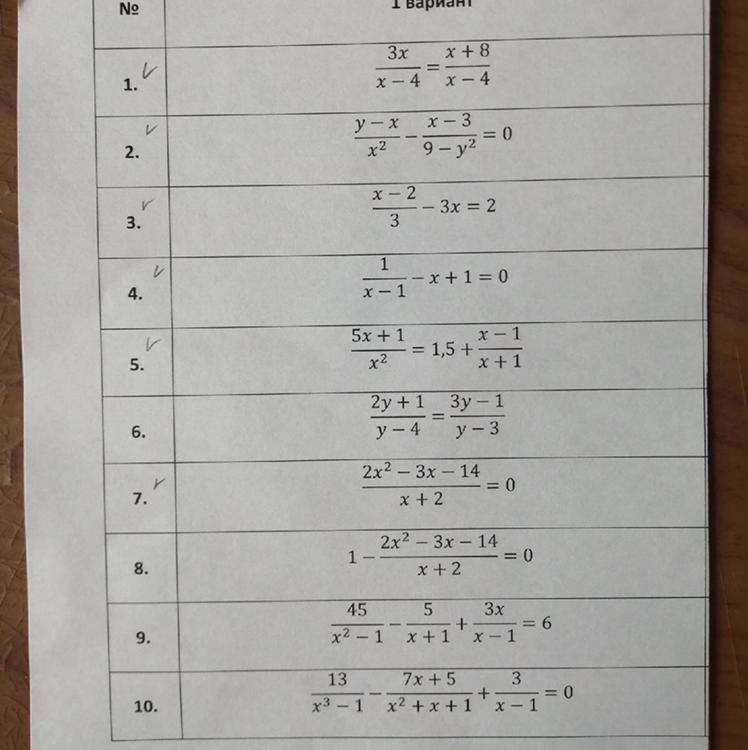 № 1 вариант
1. 3x/(x − 4) = (x + 8)/(x − 4)
2. (y − x)/x² − (x − 3)/(9 − y²) = 0
3. (x − 2)/3 − 3x = 2
4. 1/(x − 1) − x + 1 = 0
5. (5x + 1)/x² = 1,5 + (x − 1)/(x + 1)
6. (2y + 1)/(y − 4) = (3y − 1)/(y − 3)
7. (2x² − 3x − 14)/(x + 2) = 0
8. 1 − (2x² − 3x − 14)/(x + 2) = 0
9. 45/(x² − 1) − 5/(x + 1) + 3x/(x − 1) = 6
10. 13/(x³ − 1) − (7x + 5)/(x² + x + 1) + 3/(x − 1) = 0